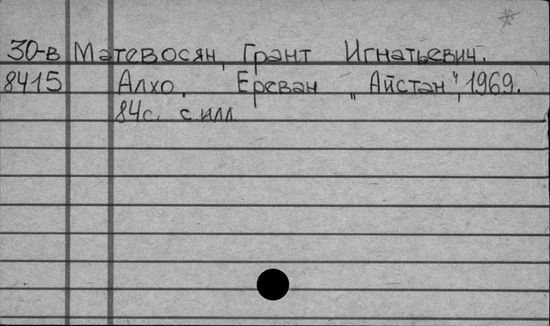 30-в Матевосян, Грант Игнатьевич.
8415 Алхо. Ереван „Айстан“, 1969.
84с. с илл